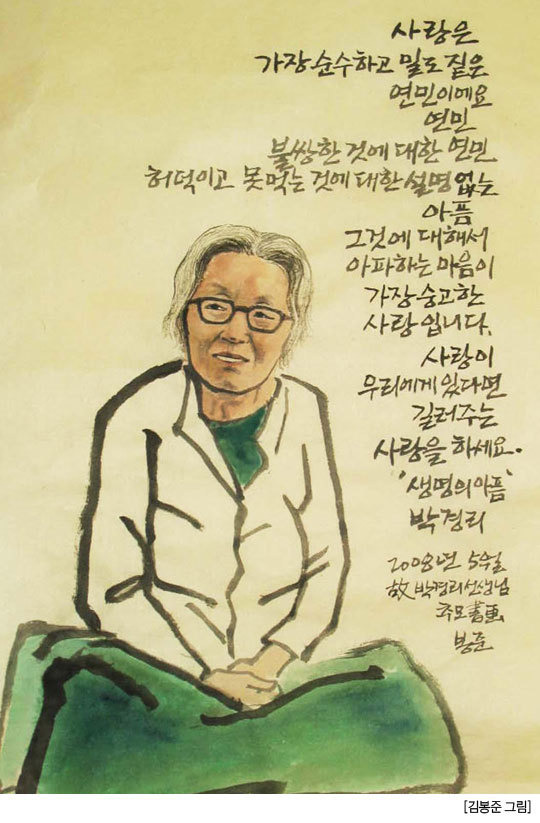 사랑은
가장 순수하고 밀도 짙은
연민이에요
연민
불쌍한 것에 대한 연민
허덕이고 못 먹는 것에 대한 설명 없는
아픔
그것에 대해서
아파하는 마음이
가장 숭고한
사랑입니다.
사랑이
우리에게 있다면
길러주는
사랑을 하세요.
'생명의 아픔'
박경리
2008년 5월
故 박경리선생님
추모書画
봉준
[김봉준 그림]